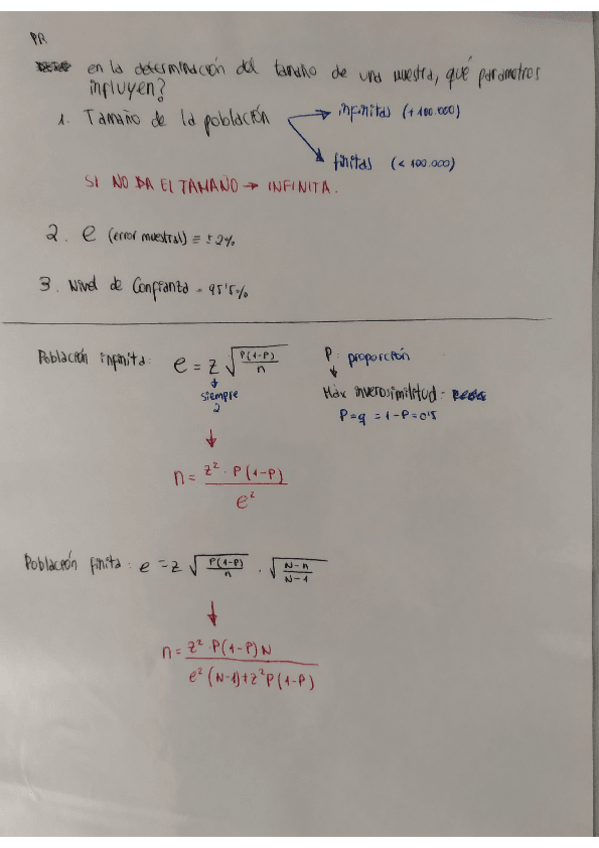 PR
en la determinación del tamaño de una muestra, qué parametros
influyen?
1. Tamaño de la población → infinitas (+100.000)
→ finitas (<100.000)
SI NO DA EL TAMAÑO → INFINITA.
2. e (error muestral) = ±2%
3. Nivel de Confianza = 95'5%
Población infinita: e = z √(P(1-P)/n) P: proporción
siempre
2
Máx inverosimilitud:
P=q = 1-P=0'5
n = z² · P(1-P) / e²
Población finita: e = z √(P(1-P)/n) · √(N-n/N-1)
n = z² · P(1-P)N / e² (N-1)+z²P(1-P)